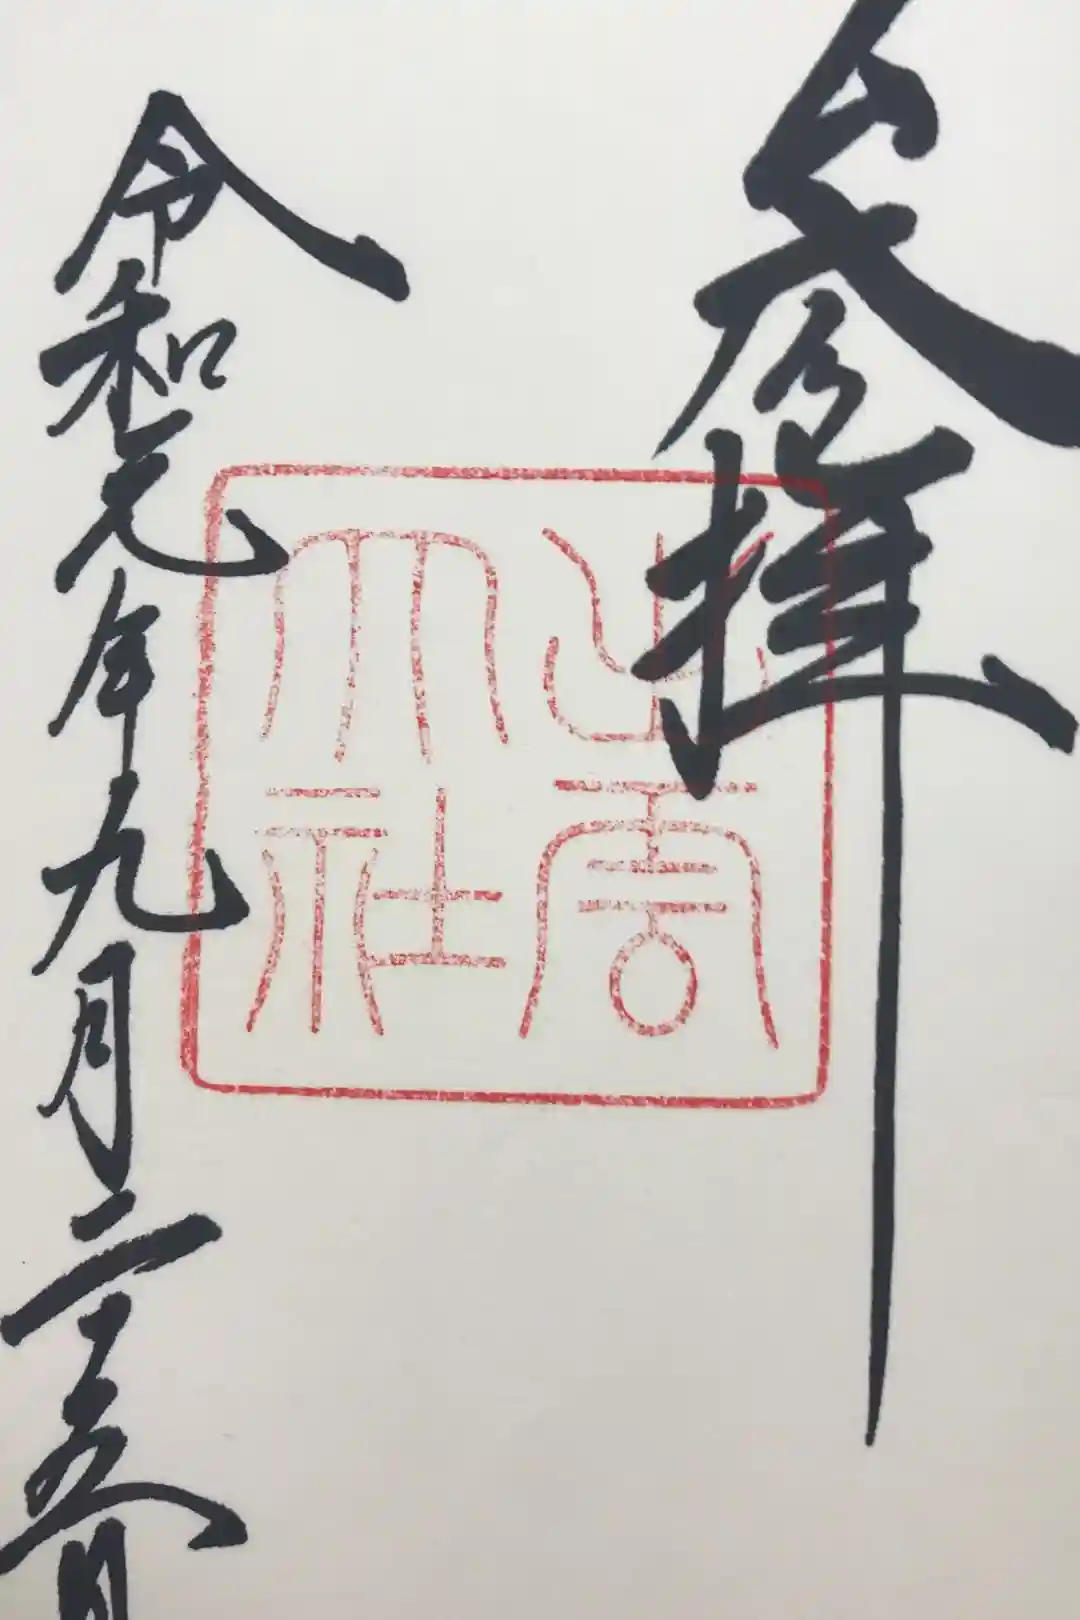 参拝
出雲
大社
令和元年九月二十五日